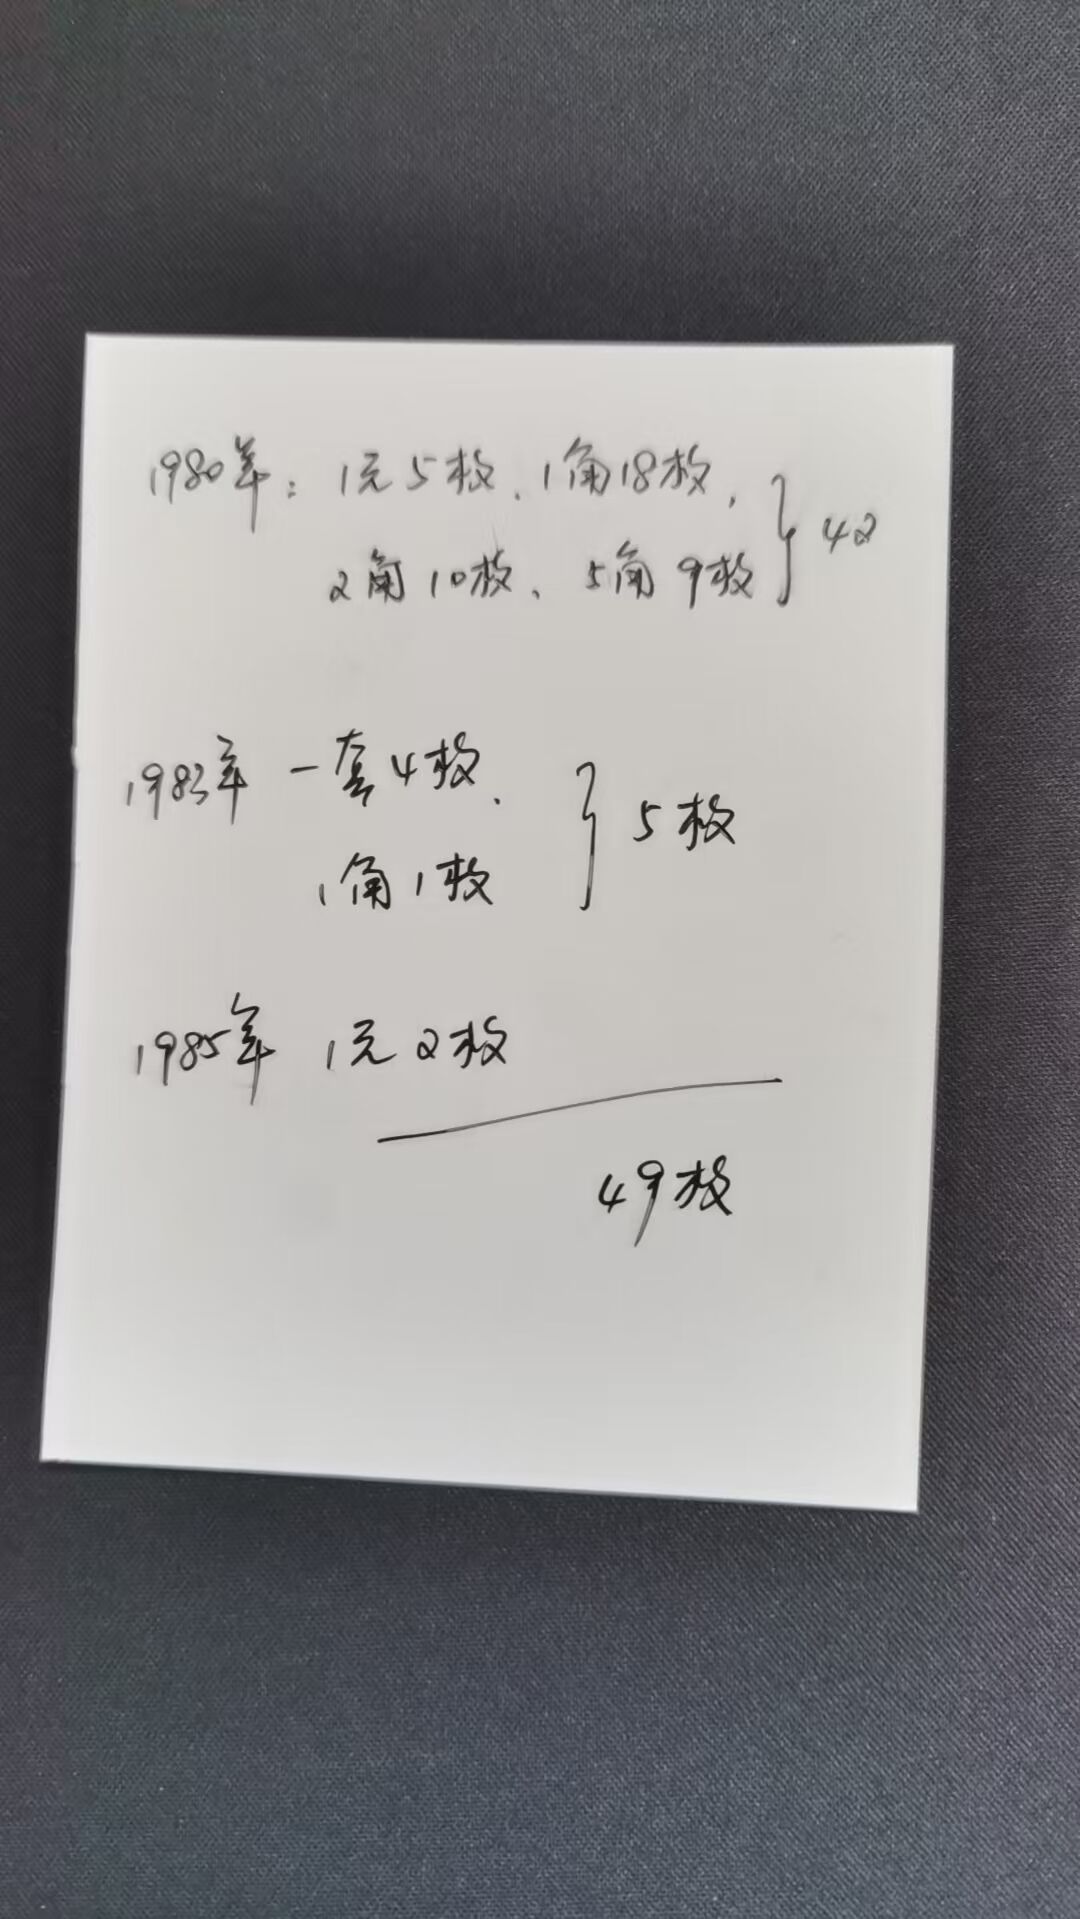 1980年：1元5枚、1角18枚、
2角10枚、5角9枚 } 42
1983年 一套4枚、
1角1枚 } 5枚
1985年 1元2枚
49枚